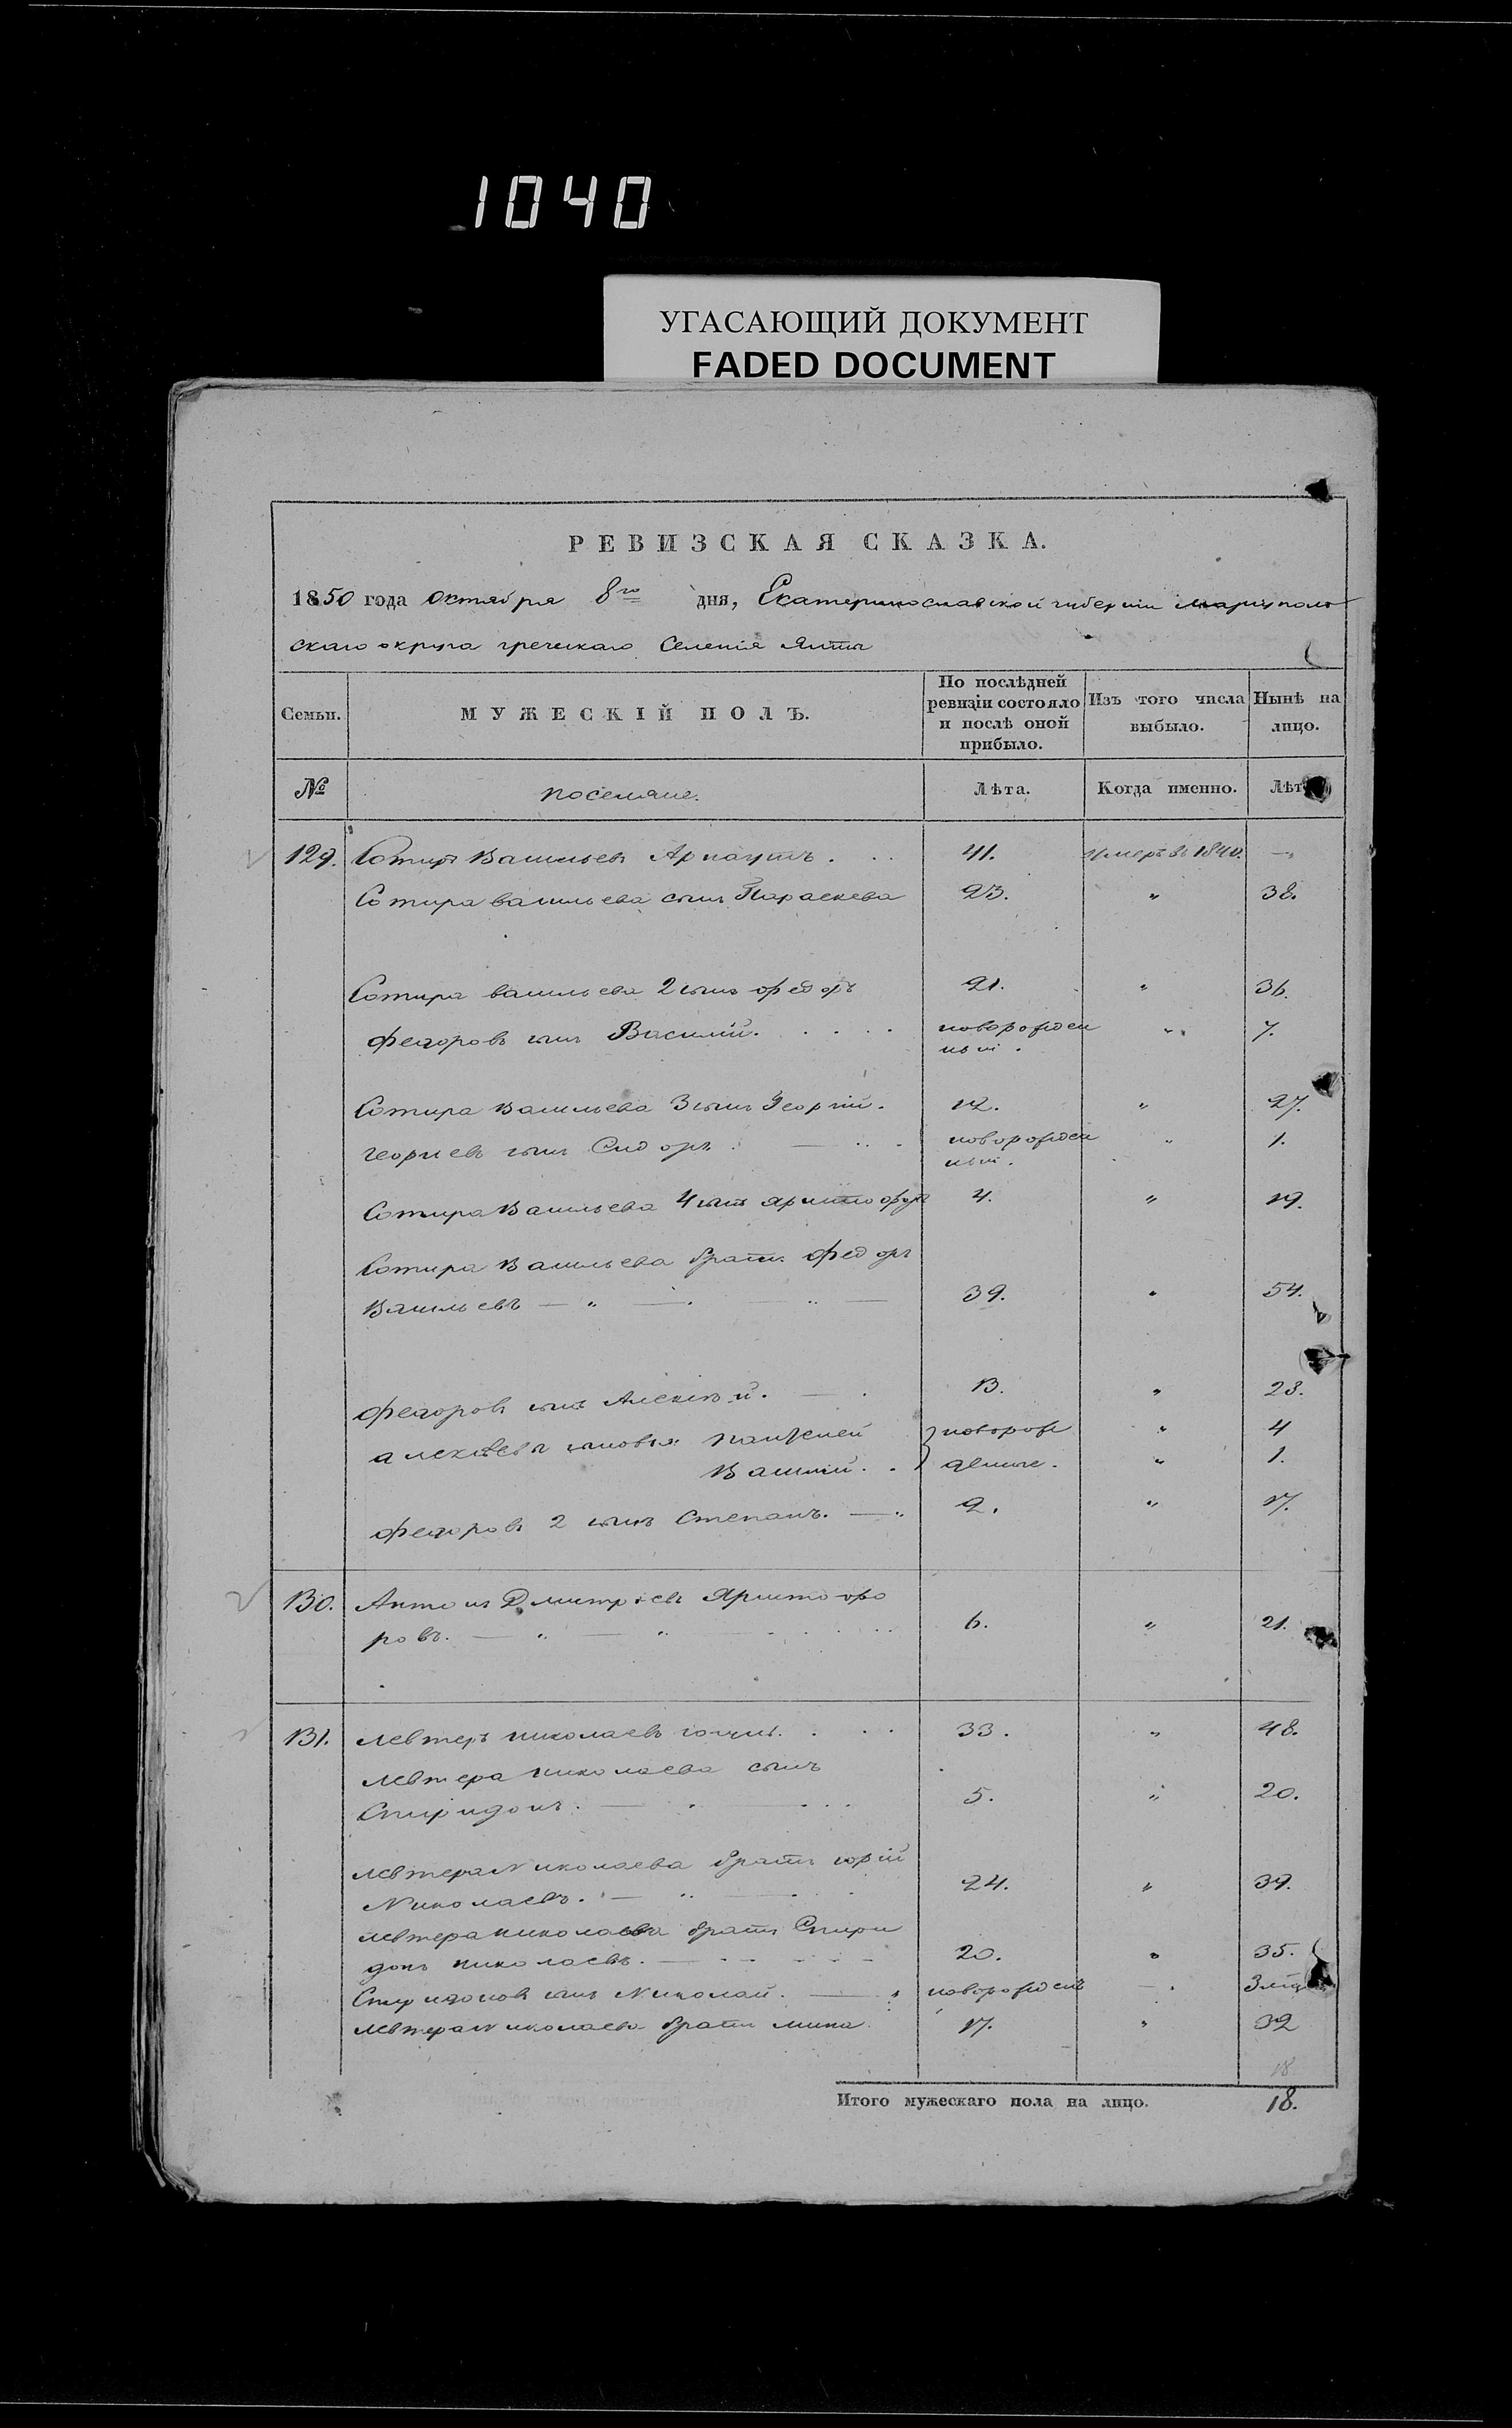 1040
УГАСАЮЩИЙ ДОКУМЕНТ
FADED DOCUMENT
РЕВИЗСКАЯ СКАЗКА.
1850 года Октября 8го дня, Екатеринославской губерніи Маріуполь
скаго округа греческаго Селенія Ялты
Семьи. МУЖЕСКІЙ ПОЛЪ. По послѣдней ревизіи состояло и послѣ оной прибыло. Изъ того числа выбыло. Нынѣ на лицо.
№ поселяне. Лѣта. Когда именно. Лѣт
129. Сотиръ Васильевъ Арнаутъ . . . 41. умеръ въ 1840. —
Сотира васильева сынъ Параскева 23. " 38.
Сотира васильева 2 сынъ Федоръ 21. " 36.
Федоровъ сынъ Василій. . . . . новорожден " 7.
ный .
Сотира васильева 3 сынъ Георгій. 12. " 27.
Георгіевъ сынъ Сидоръ. новорожден " 1.
ный.
Сотира Васильева 4 сынъ 4. " 19.
Сотира Васильева братъ Федоръ
Васильевъ — " — 39. " 54.
Федоровъ сынъ Алексѣй. — 13. " 28.
алексѣевы сыновья Пантелей новорож " 4
Василій. . денные. " 1.
Федоровъ 2 сынъ Степанъ. — 2. " 17.
130. Антонъ Дмитріевъ Христофо
ровъ. — " — " — 6. " 21.
131. Левтеръ николаевъ . . . 33. " 48.
Левтера николаева сынъ
Спиридонъ. — 5. " 20.
Левтера Николаева братъ юрій
Николаевъ. — " — 24. " 39.
Левтера николаева братъ Спири
донъ николаевъ. — 20. " 35.
Спиридоновъ сынъ Николай. — новорожден — 3
Левтера Николаева братъ мина 17. " 32
18
Итого мужескаго пола на лицо. 18.